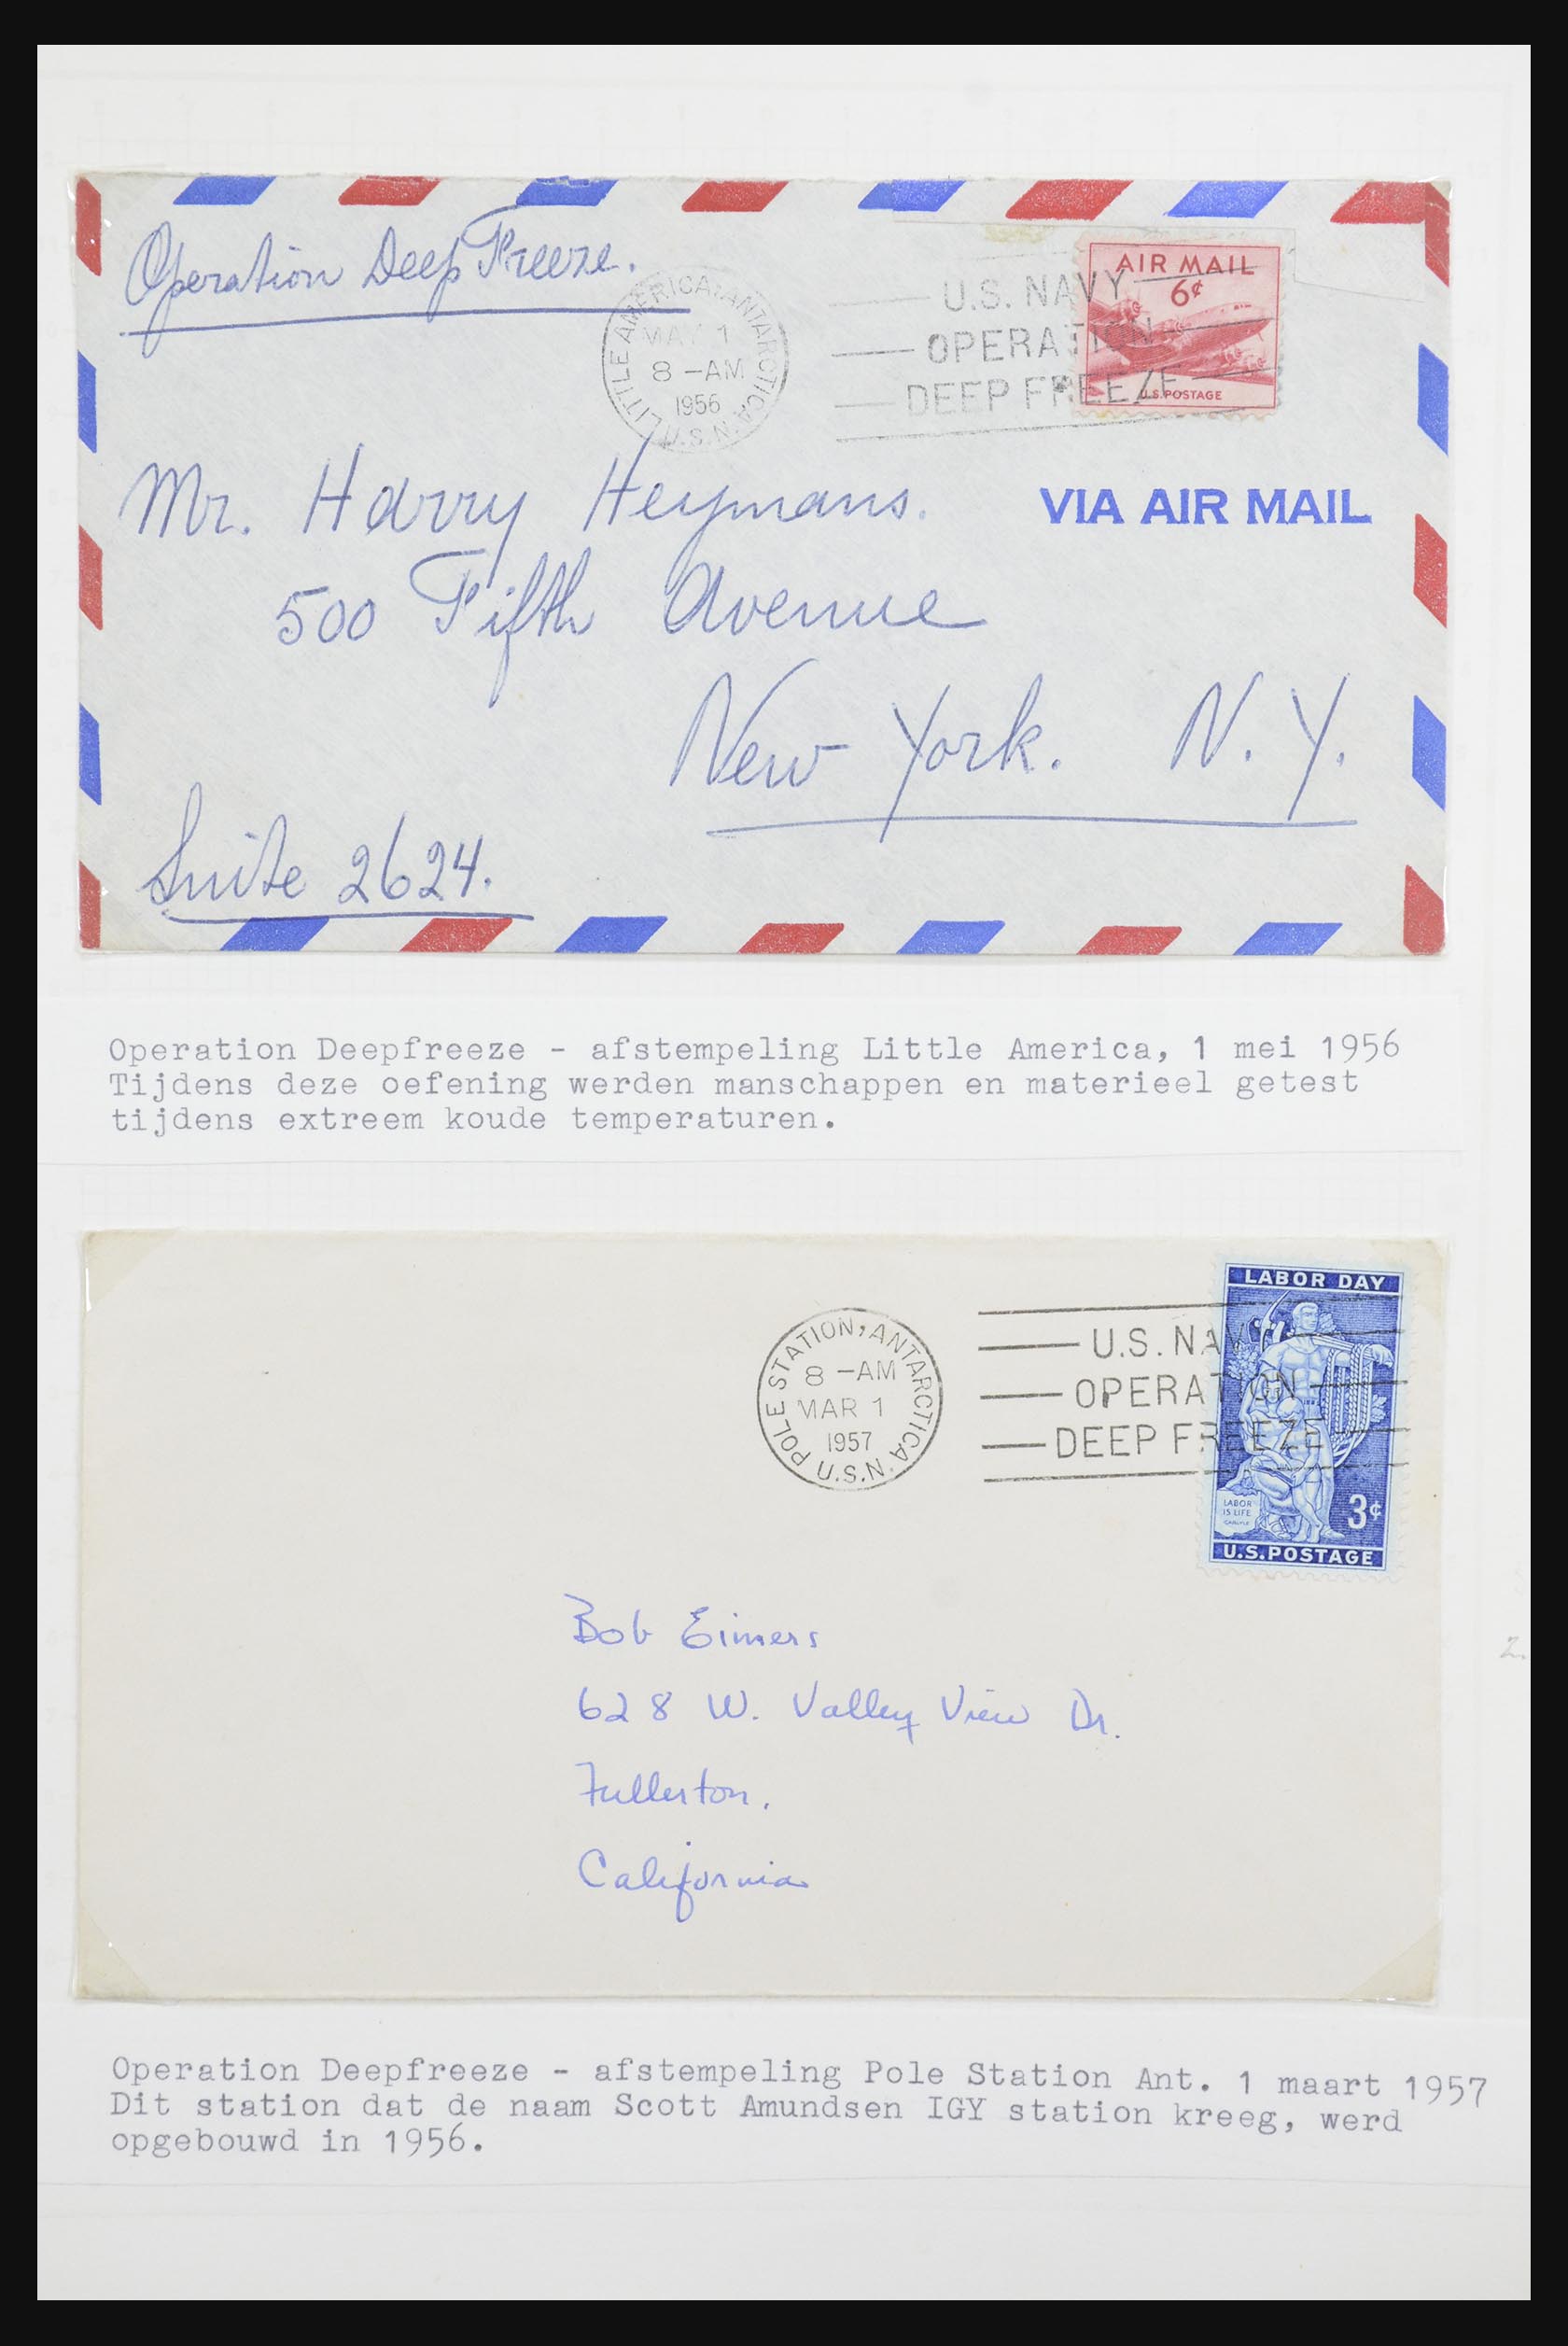 Operation Deep Freeze.
LITTLE AMERICA, ANTARCTICA U.S.N.
MAY 1
8 -AM
1956
U.S. NAVY
OPERATION
DEEP FREEZE
AIR MAIL
6¢
U.S. POSTAGE
Mr. Harry Heymans.
VIA AIR MAIL
500 Fifth Avenue
New York. N.Y.
Suite 2624.
Operation Deepfreeze - afstempeling Little America, 1 mei 1956
Tijdens deze oefening werden manschappen en materieel getest
tijdens extreem koude temperaturen.
POLE STATION, ANTARCTICA U.S.N.
8 -AM
MAR 1
1957
U.S. NAVY
OPERATION
DEEP FREEZE
LABOR DAY
LABOR
IS LIFE
CARLYLE
3¢
U.S. POSTAGE
Bob Eimers
628 W. Valley View Dr.
Fullerton.
California
Operation Deepfreeze - afstempeling Pole Station Ant. 1 maart 1957
Dit station dat de naam Scott Amundsen IGY station kreeg, werd
opgebouwd in 1956.